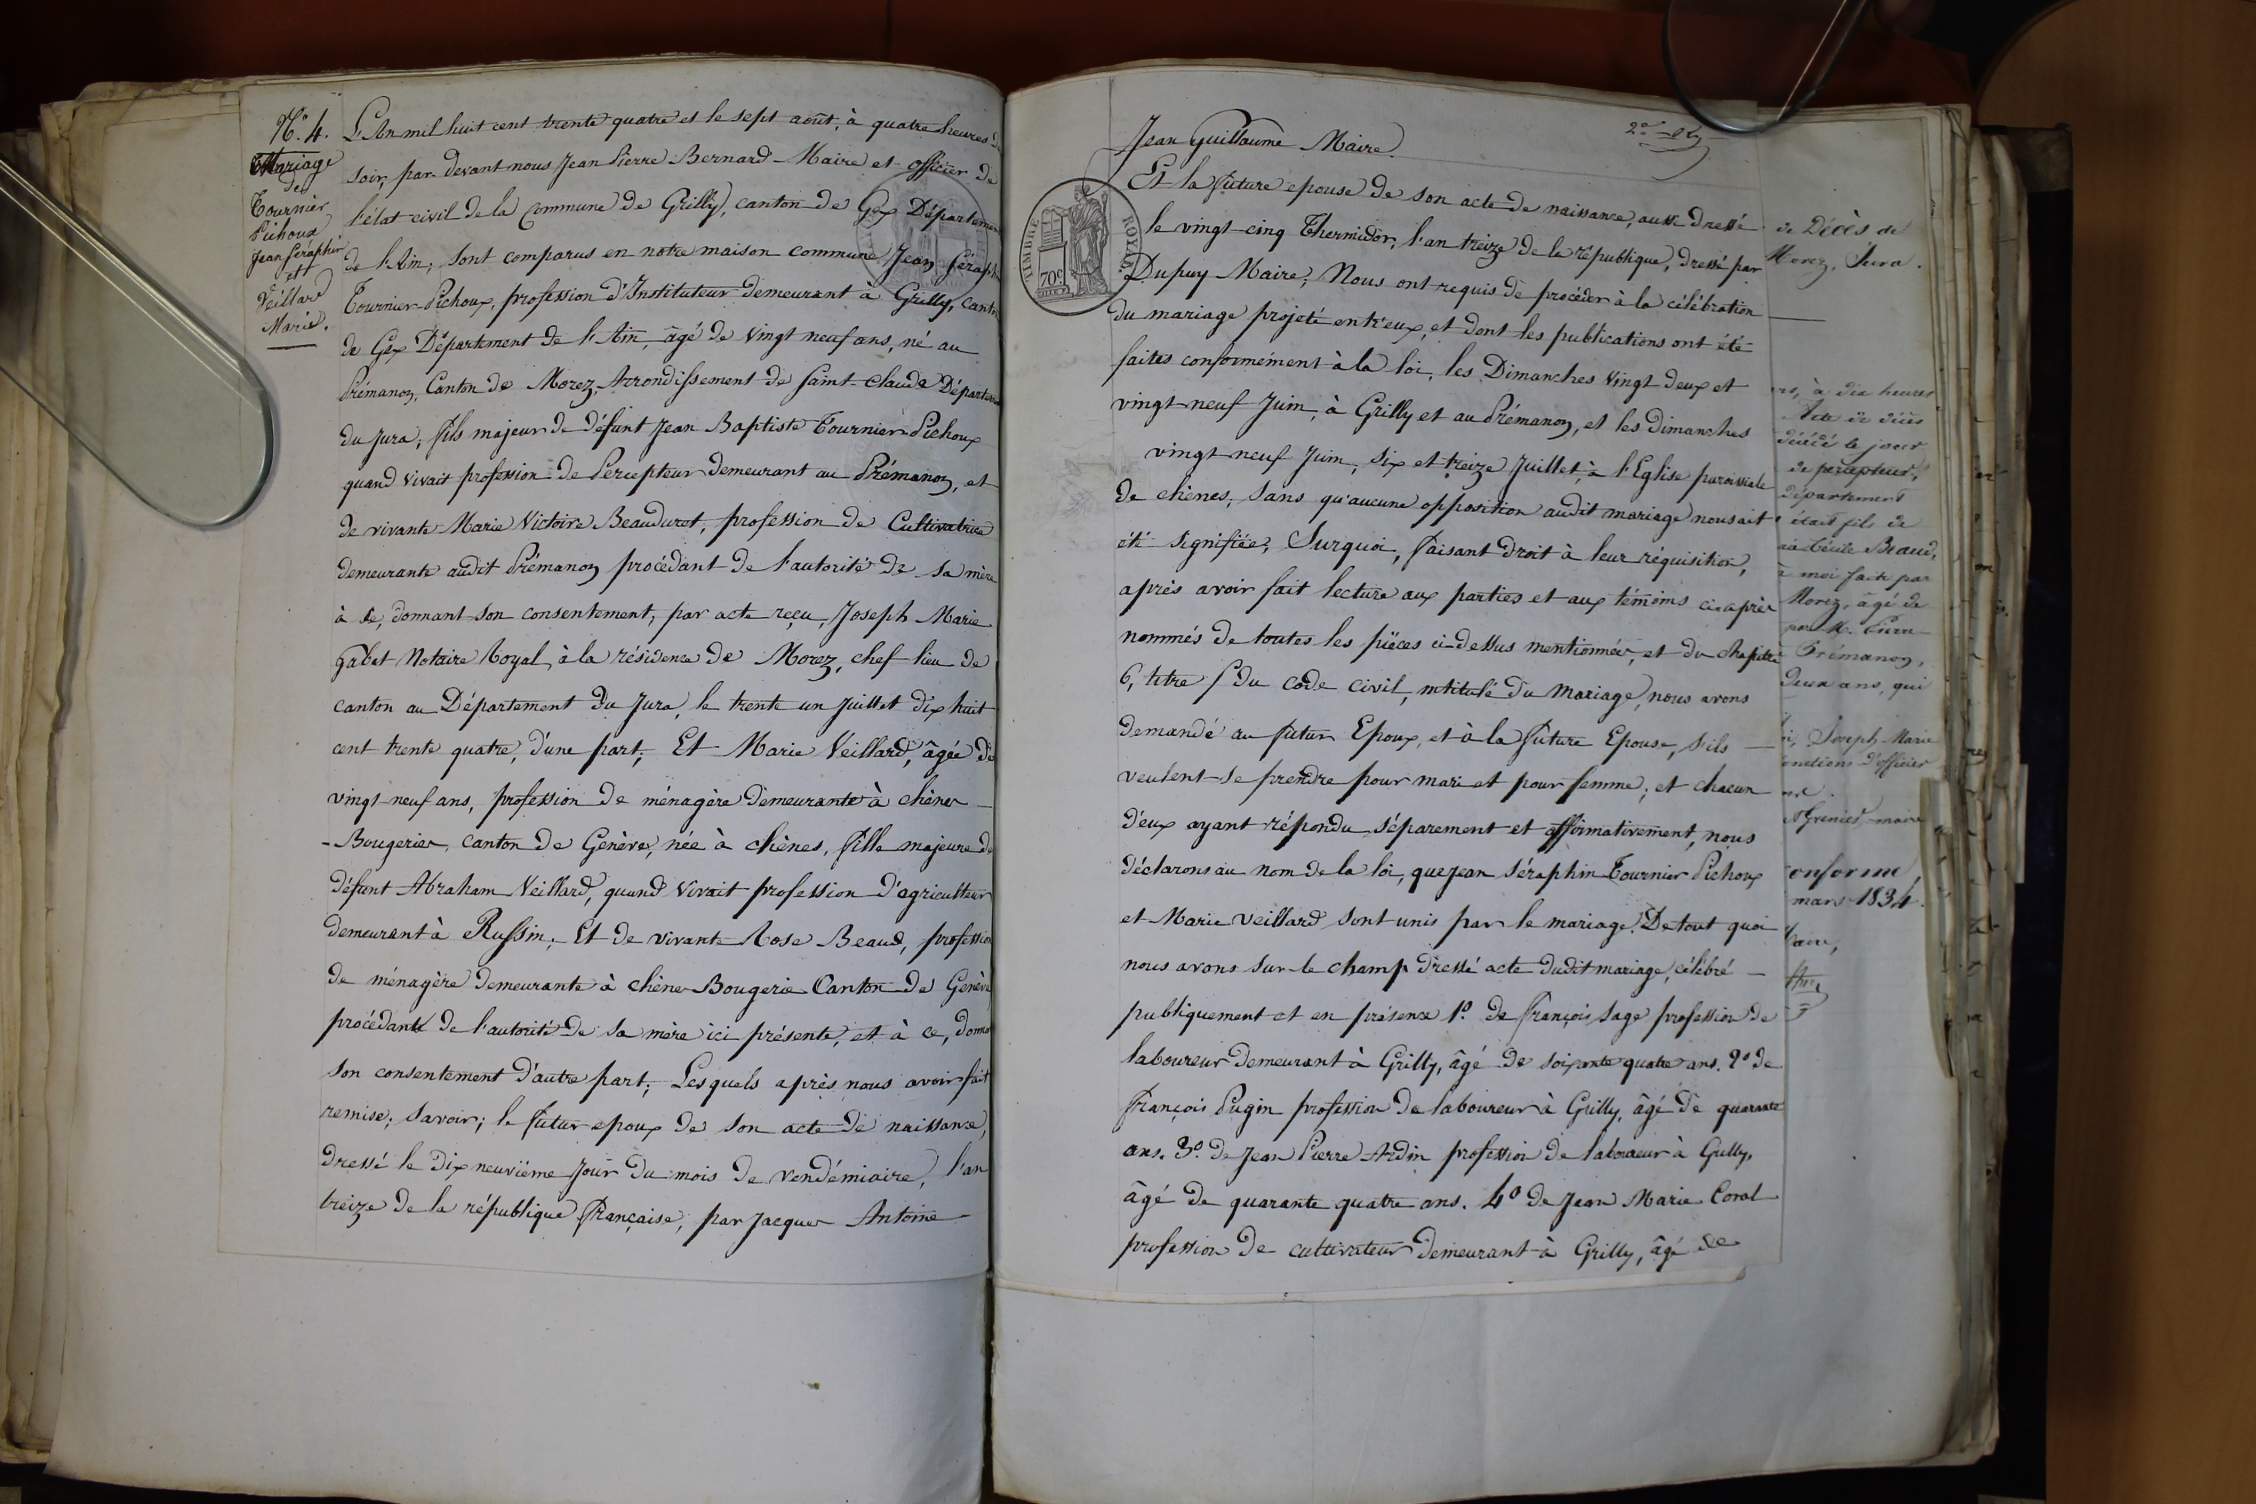 N.° 4.
Mariage
de
Tournier
Pichoux
Jean Séraphin
et
Veillard
Marie.
L'An mil huit cent trente quatre et le sept août, à quatre heures
soir, par devant nous Jean Pierre Bernard Maire et officier de
l'état civil de la Commune de Grilly, canton de Gex Départemen
de l'Ain, sont comparus en notre maison commune, Jean Séraph
Tournier-Pichoux, profession d'Instituteur demeurant à Grilly, Canto
de Gex Département de l'Ain, âgé de vingt neuf ans, né au
Prémanon, Canton de Morez, Arrondissement de Saint-Claude Départem
du Jura; fils majeur de défunt Jean Baptiste Tournier-Pichoux
quand vivait profession de Percepteur demeurant au Prémanon, et
de vivante Marie Victoire Beaudurot, profession de Cultivatrice
demeurante audit Prémanon procédant de l'autorité de sa mère
à ce, donnant son consentement, par acte reçu, Joseph Marie
Gabet Notaire Royal à la résidence de Morez, chef-lieu de
canton au Département du Jura, le trente un Juillet dix huit
cent trente quatre, d'une part; Et Marie Veillard, âgée de
vingt-neuf ans, profession de ménagère demeurante à chênes
-Bougeries, canton de Genève, née à chênes, fille majeure de
défunt Abraham Veillard, quand vivait profession d'agriculteur
demeurant à Russin; Et de vivante Rose Beaud, profession
de ménagère demeurante à chêne-Bougerie Canton de Genève
procédante de l'autorité de sa mère ici présente, et à ce, donna
son consentement d'autre part; Lesquels après nous avoir fait
remise; savoir; le futur epoux de son acte de naissance,
dressé le dix neuvième jour du mois de vendémiaire, l'an
treize de la république française, par Jacques Antoine
Jean Guillaume Maire.
TIMBRE ROYAL
70c.
Et la future epouse de son acte de naissance, aussi dressé
le vingt-cinq Thermidor, l'an treize de la république, dressé par
Dupuy Maire; Nous ont requis de procéder à la célébration
du mariage projeté entr'eux, et dont les publications ont été
faites conformément à la loi, les Dimanches vingt deux et
vingt-neuf Juin, à Grilly et au Prémanon, et les dimanches
vingt-neuf Juin, six et treize Juillet, à l'Eglise paroissiale
de chênes; sans qu'aucune opposition audit mariage nous ait
été signifiée; Surquoi, faisant droit à leur réquisition,
après avoir fait lecture aux parties et aux témoins ci-après
nommés de toutes les pièces ci-dessus mentionnées, et du chapitre
6, titre 5 du code civil, intitulé du mariage, nous avons
demandé au futur Epoux, et à la future Epouse, s'ils
veulent-se prendre pour mari et pour femme; et chacun
d'eux ayant répondu séparement et affirmativement, nous
déclarons au nom de la loi, que Jean Séraphin Tournier Pichoux
et Marie Veillard sont unis par le mariage. De tout quoi
nous avons sur-le champ dressé acte dudit mariage, célébré
publiquement et en présence 1.° de François Sage profession de
laboureur demeurant à Grilly, âgé de soixante quatre ans. 2.° de
François Pugin profession de laboureur à Grilly, âgé de quarante
ans. 3.° de Jean Pierre Ardin profession de laboureur à Grilly,
âgé de quarante quatre ans. 4.° de Jean Marie Coral
profession de cultivateur demeurant à Grilly, âgé de
de Décès de
Morez, Jura.
à dix heures
Acte de décès
décédé le jour
de percepteur,
département
était fils de
Cécile Beaud,
à moi faite par
Morez, âgé de
Prémanon,
deux ans, qui
Joseph-Marie
fonctions d'officier
Grenier, maire
conforme
mars 1834.